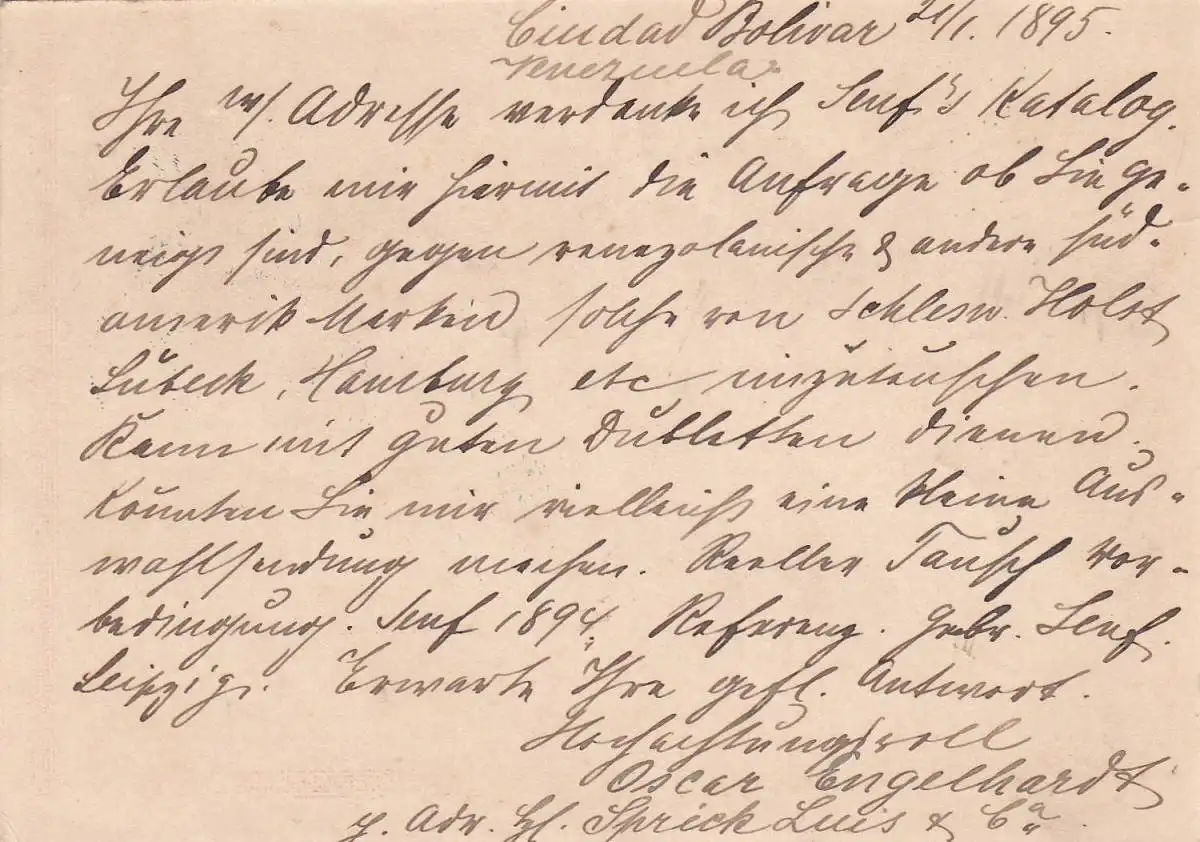 Ciudad Bolivar 21/1. 1895.
Venezuela
Ihre w/. Adresse verdanke ich Senf's Katalog.
Erlaube mir hiermit die Anfrage ob Sie ge-
neigt sind, gegen venezolanische & andere süd-
amerik Marken solche von Schlesw. Holst
Lübeck, Hamburg etc einzutauschen.
Kann mit guten Dubletten dienen.
Könnten Sie mir vielleicht eine kleine Aus-
wahlsendung machen. Reeller Tausch Vor-
bedingung. Senf 1894. Referenz. Gebr. Senf.
Leipzig. Erwarte Ihre gefl. Antwort.
Hochachtungsvoll
Oscar Engelhardt
p. Adr. HH. Sprick Luis & Ca.